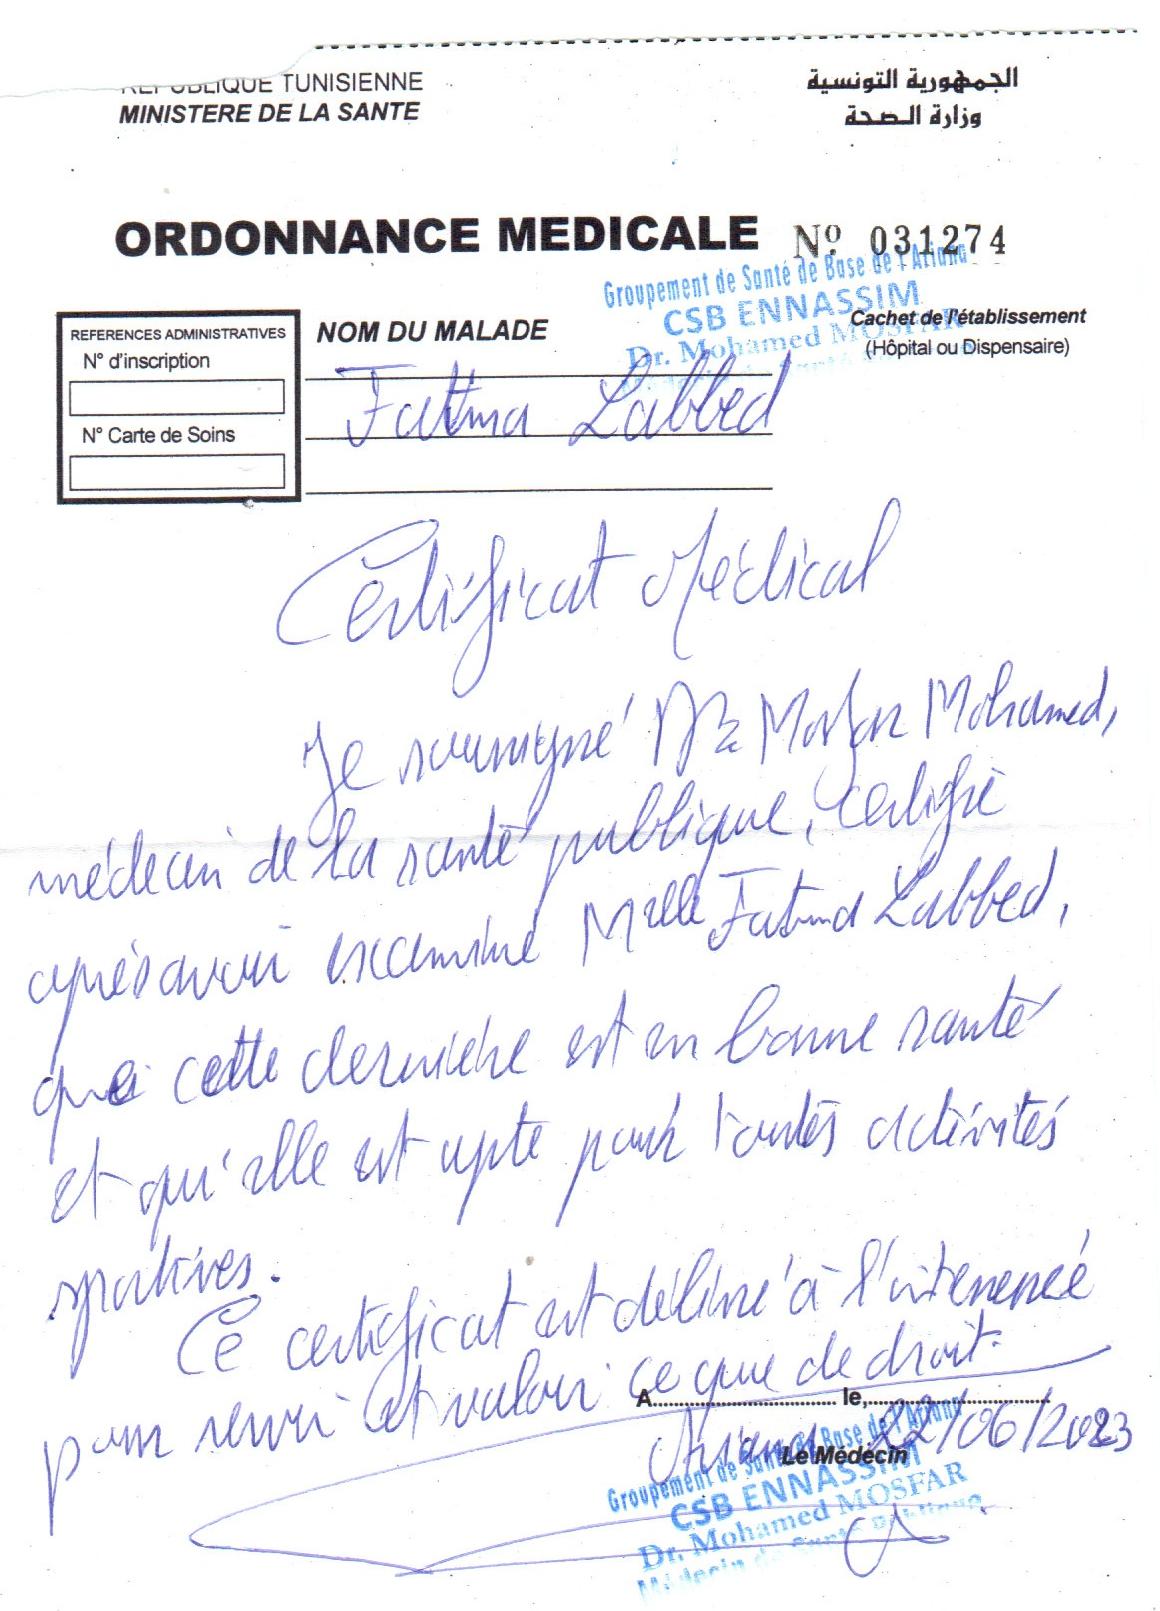 REPUBLIQUE TUNISIENNE
MINISTERE DE LA SANTE
الجمهورية التونسية
وزارة الصحة
ORDONNANCE MEDICALE Nº 031274
Groupement de Santé de Base de l'Ariana
CSB ENNASSIM
Dr. Mohamed MOSFAR
Cachet de l'établissement
(Hôpital ou Dispensaire)
REFERENCES ADMINISTRATIVES
N° d'inscription
N° Carte de Soins
NOM DU MALADE
Fatma Labbed
Certificat Médical
Je soussigné Dr Mosfar Mohamed,
médecin de la santé publique, certifie
après avoir examiné Melle Fatma Labbed,
que cette dernière est en bonne santé
et qu'elle est apte pour toutes activités
sportives.
Ce certificat est délivré à l'interessée
pour servir et valoir ce que de droit.
A.................... le,....................
Ariana 22/06/2023
Le Médecin
Groupement de Santé de Base de l'Ariana
CSB ENNASSIM
Dr. Mohamed MOSFAR
Médecin de Santé Publique